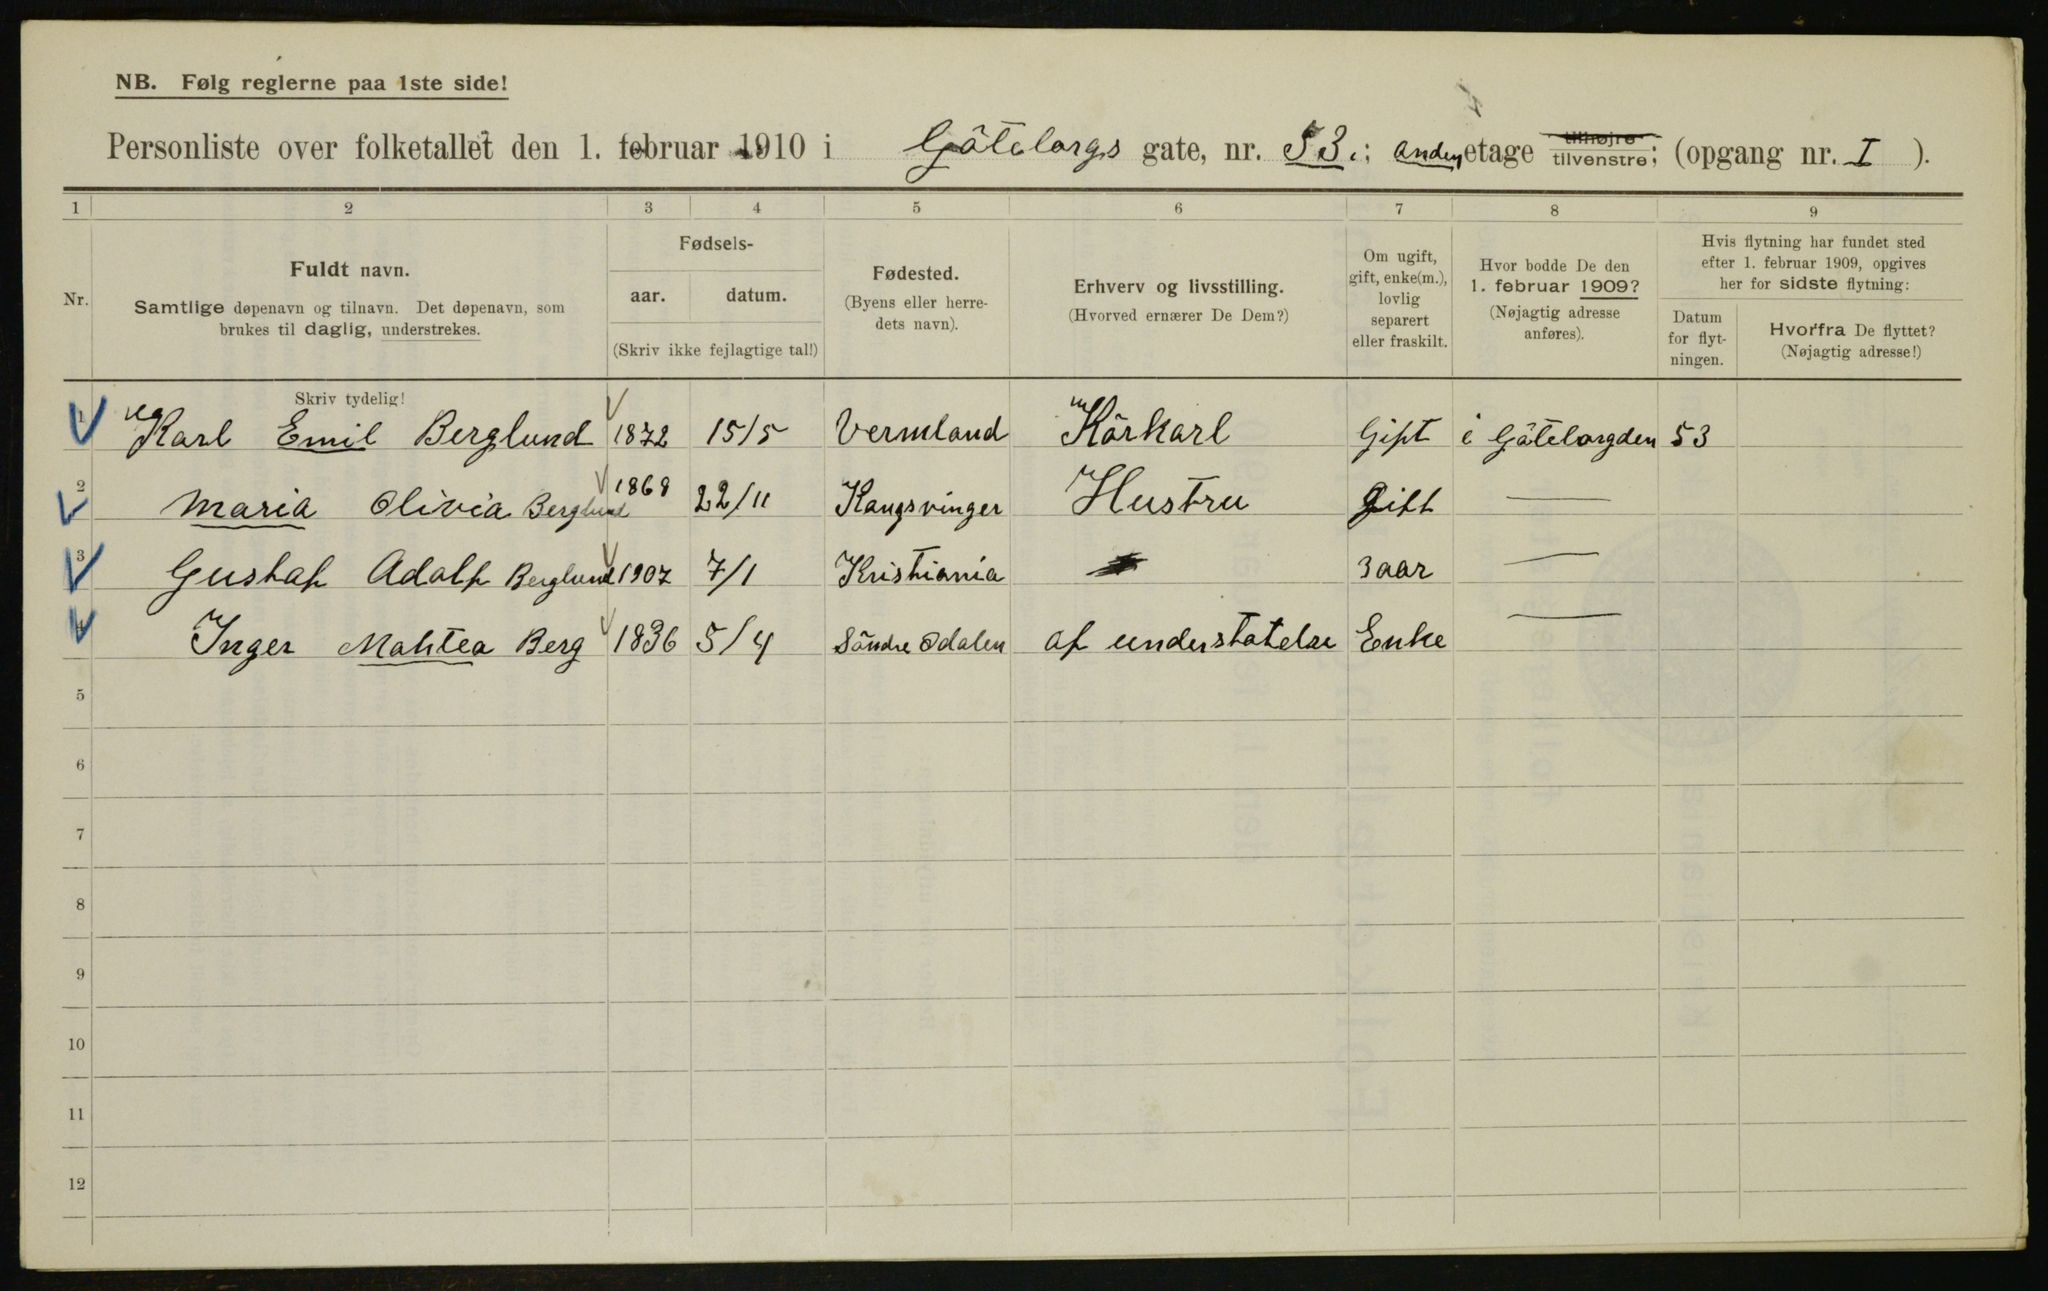 NB. Følg reglerne paa 1ste side!
Personliste over folketallet den 1. februar 1910 i Göteborgs gate, nr. 53.; anden etage tilhøjre tilvenstre; (opgang nr. I ).
1 2 3 4 5 6 7 8 9
Nr.
Fuldt navn.
Samtlige døpenavn og tilnavn. Det døpenavn, som
brukes til daglig, understrekes.
Fødsels-
aar. datum.
(Skriv ikke fejlagtige tal!)
Fødested.
(Byens eller herre-
dets navn).
Erhverv og livsstilling.
(Hvorved ernærer De Dem?)
Om ugift,
gift, enke(m.),
lovlig
separert
eller fraskilt.
Hvor bodde De den
1. februar 1909?
(Nøjagtig adresse
anføres).
Hvis flytning har fundet sted
efter 1. februar 1909, opgives
her for sidste flytning:
Datum
for flyt-
ningen.
Hvorfra De flyttet?
(Nøjagtig adresse!)
Skriv tydelig!
1 Karl Emil Berglund 1872 15/5 Vermland Körkarl Gift i Göteborgden 53
2 Maria Olivia Berglund 1868 22/11 Kongsvinger Hustru Gift —
3 Gustaf Adolf Berglund 1907 7/1 Kristiania 3 aar —
4 Inger Mahtea Berg 1836 5/4 Söndre Odalen af understøtelse Enke —
5
6
7
8
9
10
11
12